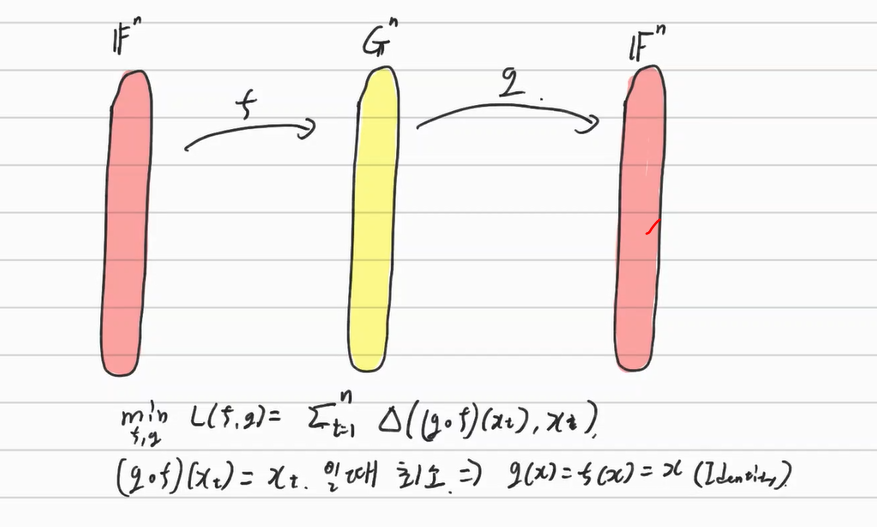 𝔽ⁿ 𝔾ⁿ 𝔽ⁿ
f g
min L(f,g)= Σₜ₌₁ⁿ Δ((g∘f)(xₜ), xₜ)
f,g
(g∘f)(xₜ) = xₜ. 일 때 최소. ⇒ g(x)=f(x)=x (Identity)